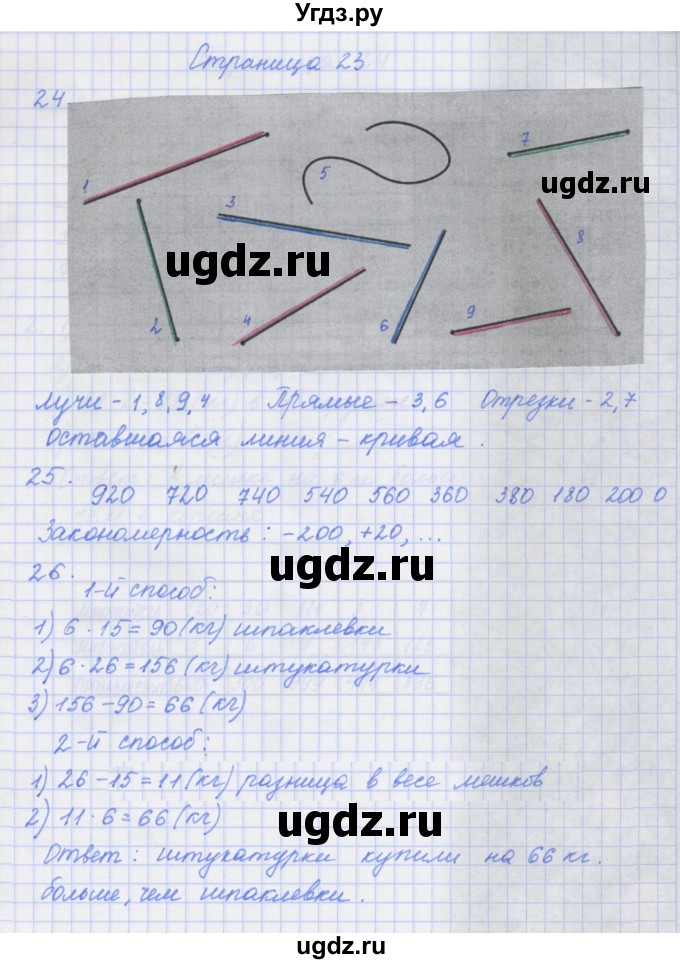 Угдз.ру
Страница 23
24
1
2
3
4
5
6
7
8
9
ugdz.ru
ugdz.ru
Лучи - 1, 8, 9, 4 Прямые - 3, 6 Отрезки - 2, 7
Оставшаяся линия - кривая.
25.
920 720 740 540 560 360 380 180 200 0
Закономерность: -200, +20, ...
ugdz.ru
26.
1-й способ:
1) 6 · 15 = 90 (кг) шпаклевки
2) 6 · 26 = 156 (кг) штукатурки
3) 156 - 90 = 66 (кг)
2-й способ:
1) 26 - 15 = 11 (кг) разница в весе мешков
2) 11 · 6 = 66 (кг)
ugdz.ru
Ответ: штукатурки купили на 66 кг.
больше, чем шпаклевки.
ugdz.ru